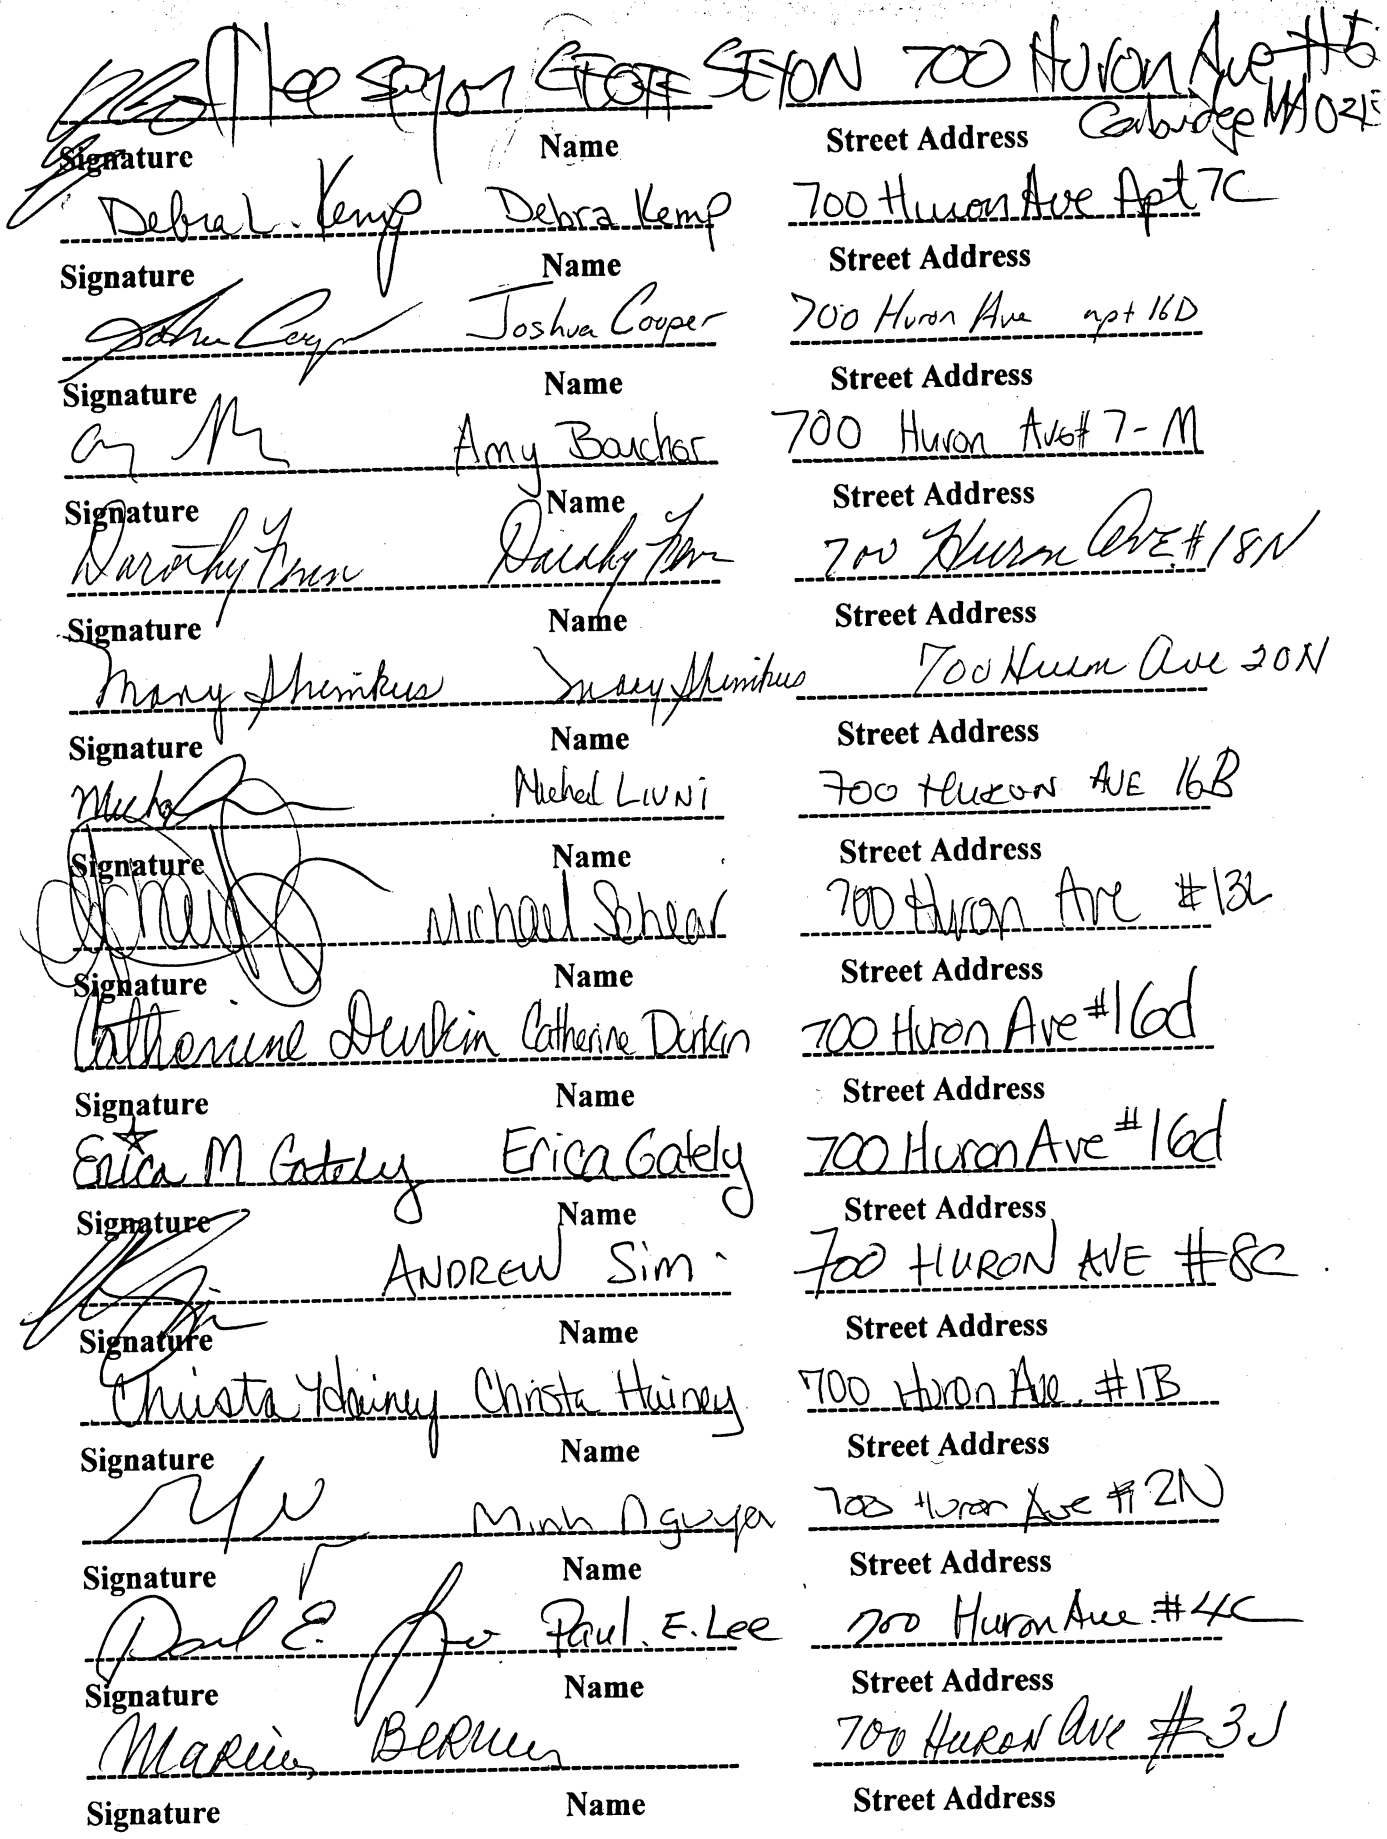 Lee Seyon GEOFF SEYON 700 Huron Ave #
Cambridge MA 021
Signature Name Street Address
Debra L. Kemp Debra Kemp 700 Huron Ave Apt 7C
Signature Name Street Address
Joshua Cooper 700 Huron Ave apt 16D
Signature Name Street Address
Amy 700 Huron Ave # 7-M
Signature Name Street Address
Dorothy Dorothy 700 Huron Ave. # 18N
Signature Name Street Address
Mary Shimkus Mary Shimkus 700 Huron Ave 20N
Signature Name Street Address
Michael 700 HURON AVE 16B
Signature Name Street Address
Michael Schear 700 Huron Ave #13L
Signature Name Street Address
Catherine Durkin Catherine Durkin 700 Huron Ave #16d
Signature Name Street Address
Erica M Gately Erica Gately 700 Huron Ave #16d
Signature Name Street Address
ANDREW Sim 700 HURON AVE #8C.
Signature Name Street Address
Christa Hainey Christa Hainey 700 Huron Ave. #1B
Signature Name Street Address
Minh Nguyen 700 Huron Ave #2N
Signature Name Street Address
Paul E. Lee Paul. E. Lee 700 Huron Ave. #4C
Signature Name Street Address
700 HURON Ave #3J
Signature Name Street Address